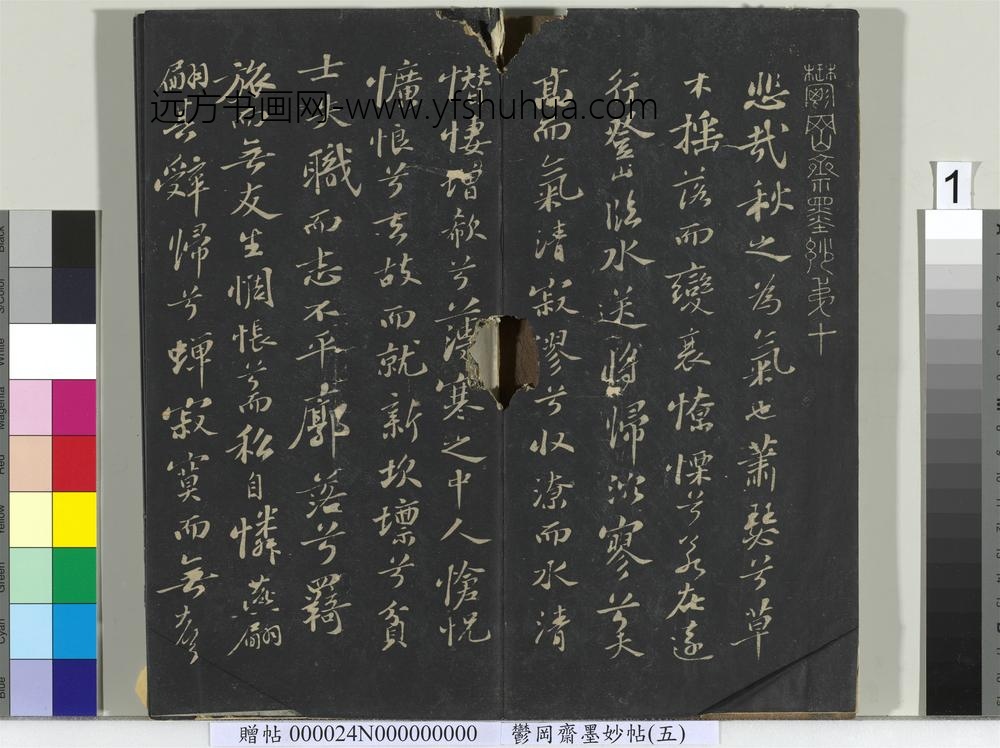 鬱岡齋墨妙弟十
悲哉秋之為氣也蕭瑟兮草
木搖落而變衰憭慄兮若在遠
行登山臨水送將歸泬寥兮天
高而氣清寂漻兮收潦而水清
憯悽增欷兮薄寒之中人愴怳
懭悢兮去故而就新坎壈兮貧
士失職而志不平廓落兮羇
旅而無友生惆悵兮而私自憐燕翩
翩其辭歸兮蟬寂寞而無聲
远方书画网-www.yfshuhua.com
1
贈帖 000024N000000000 鬱岡齋墨妙帖(五)
Black
3/Color
White
Magenta
Red
Yellow
Green
Cyan
Blue